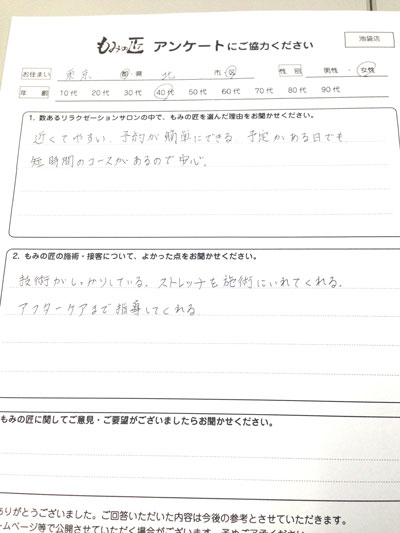 もみの匠 アンケートにご協力ください
池袋店
お住まい 東京 都・県 北 市・区 性別 男性・女性
年齢 10代 20代 30代 40代 50代 60代 70代 80代 90代
1. 数あるリラクゼーションサロンの中で、もみの匠を選んだ理由をお聞かせください。
近くてやすい、予約が簡単にできる 予定がある日でも
短時間のコースがあるので安心。
2. もみの匠の施術・接客について、よかった点をお聞かせください。
技術がしっかりしている、ストレッチも施術にいれてくれる。
アフターケアまで指導してくれる
もみの匠に関してご意見・ご要望がございましたらお聞かせください。
ありがとうございました。ご回答いただいた内容は今後の参考とさせていただきます。
ームページ等で公開させていただく場合がございます。予めご了承ください